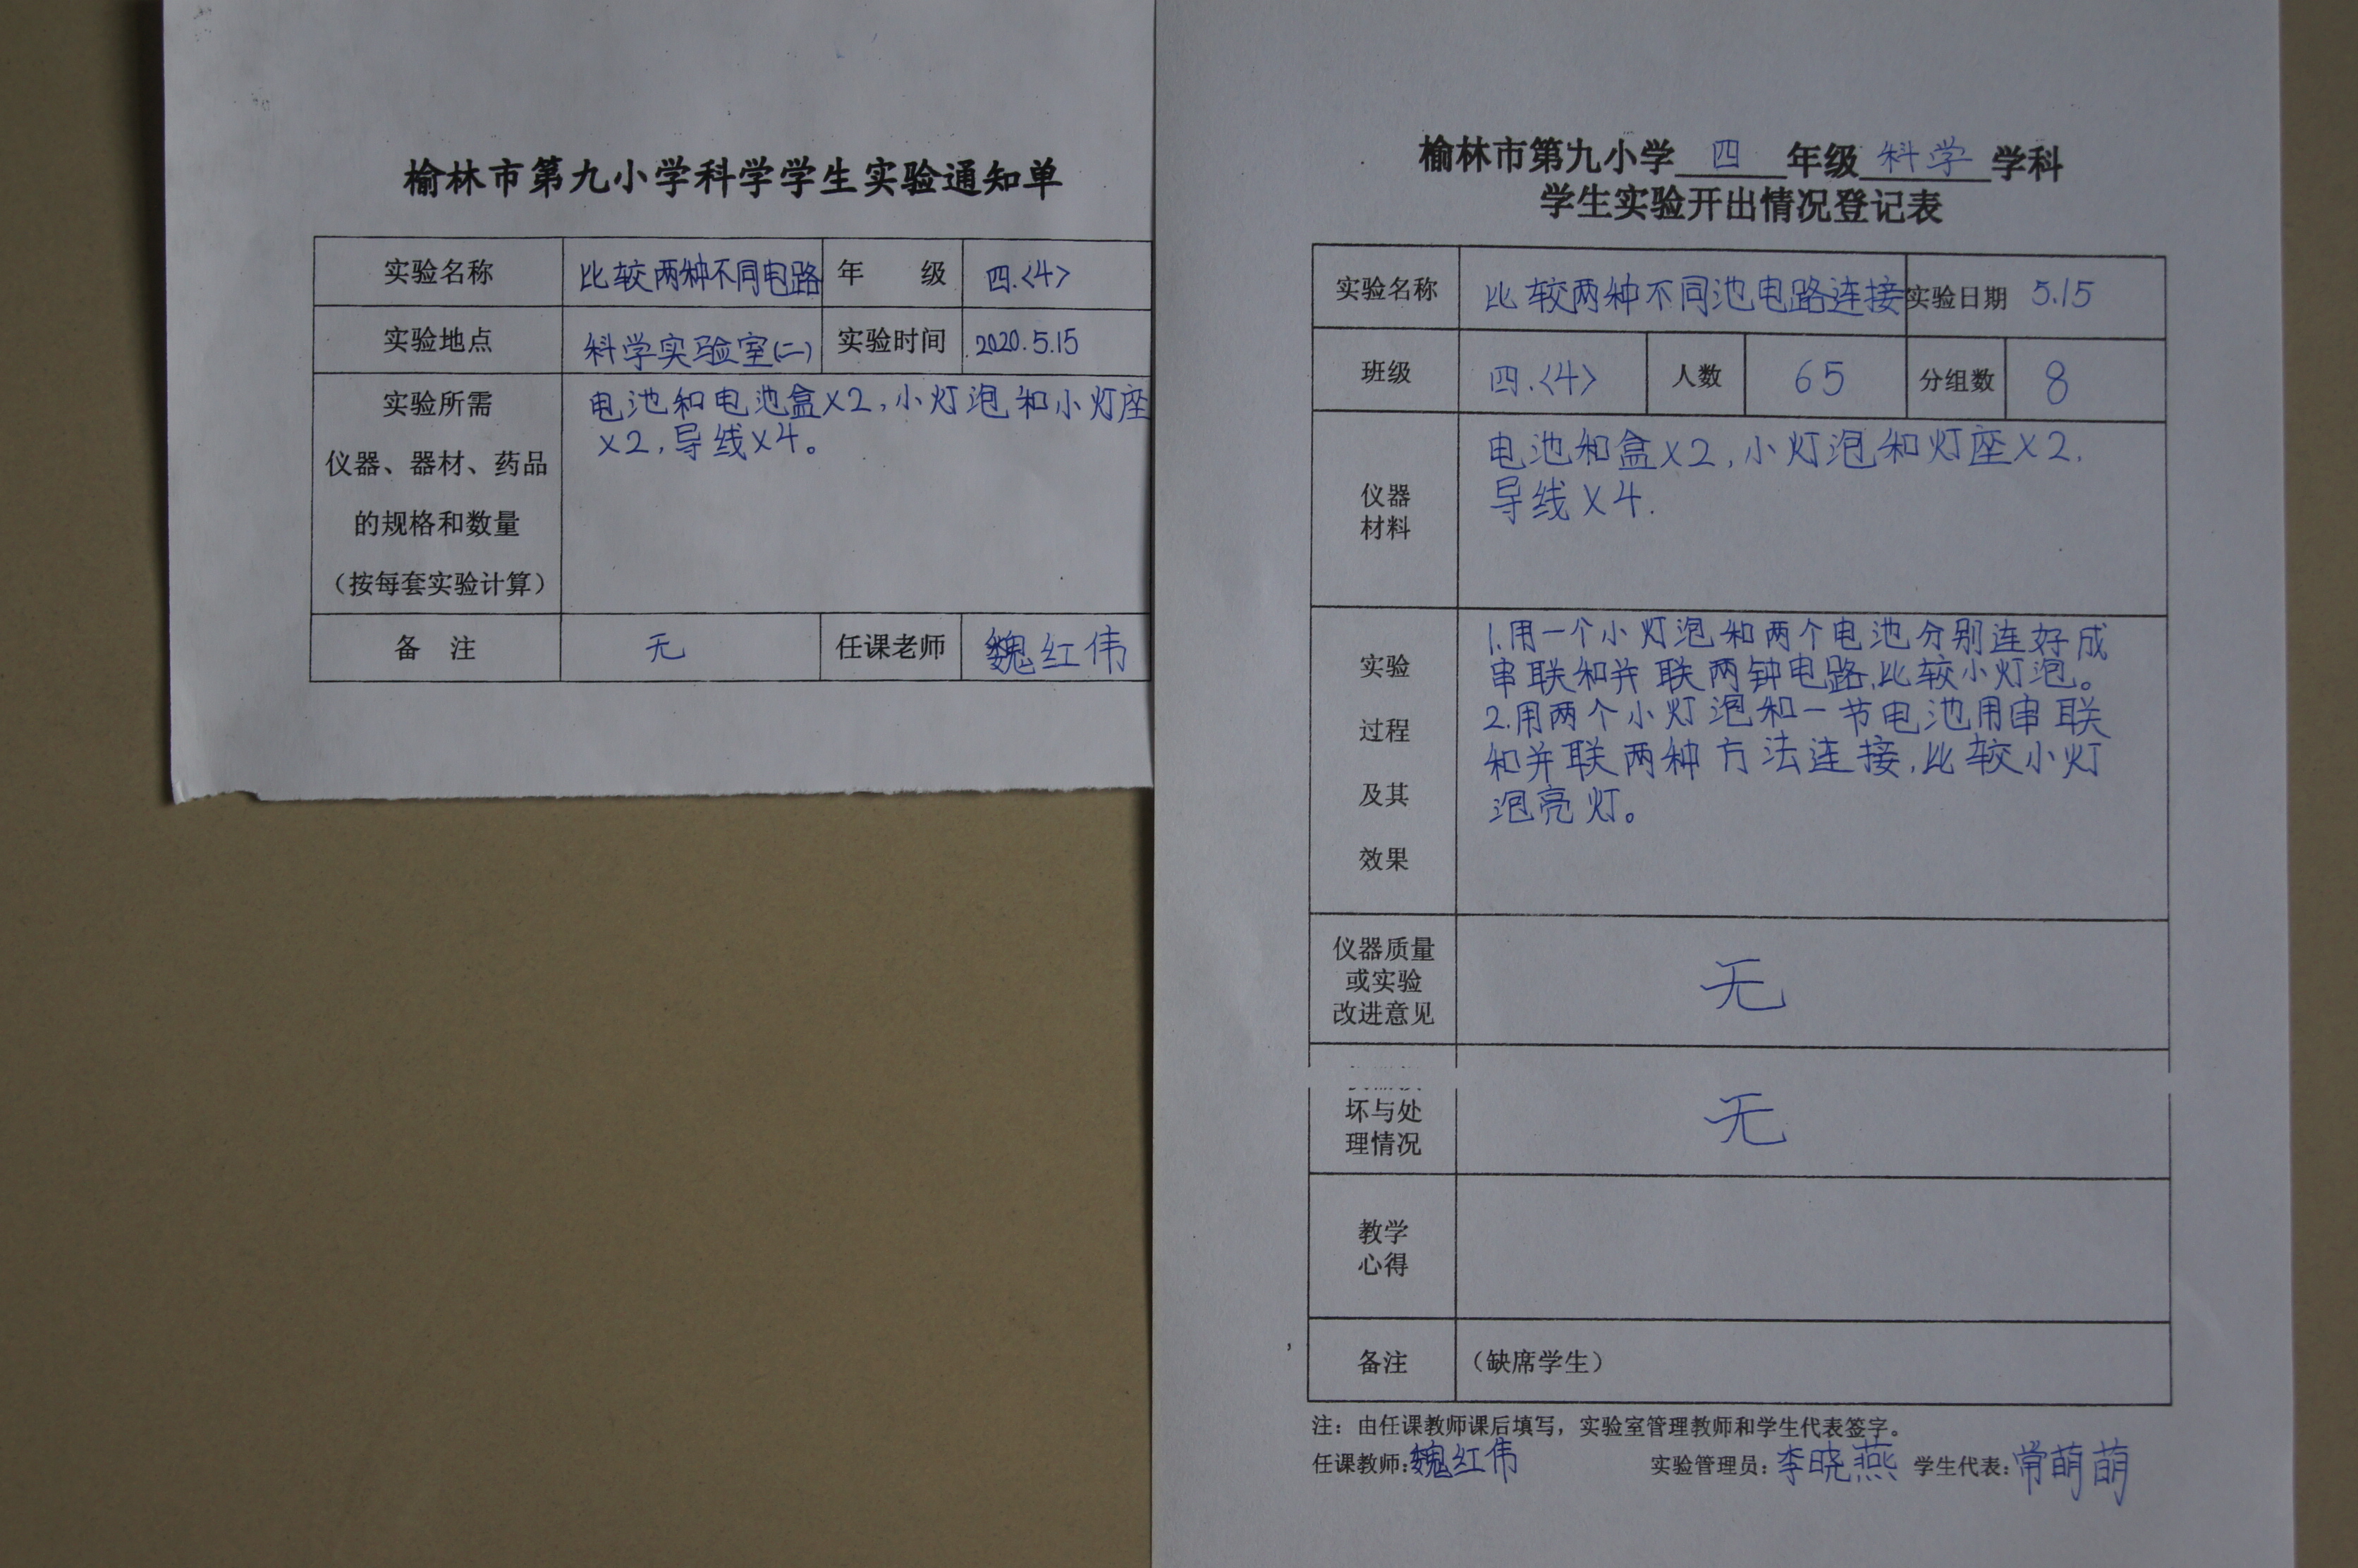 榆林市第九小学科学学生实验通知单
实验名称 比较两种不同电路 年 级 四.〈4〉
实验地点 科学实验室(二) 实验时间 2020.5.15
实验所需
仪器、器材、药品
的规格和数量
（按每套实验计算）
电池和电池盒×2,小灯泡和小灯座
×2,导线×4。
备 注 无 任课老师 魏红伟
榆林市第九小学 四 年级 科学 学科
学生实验开出情况登记表
实验名称 比较两种不同池电路连接 实验日期 5.15
班级 四.〈4〉 人数 65 分组数 8
仪器
材料
电池和盒×2,小灯泡和灯座×2.
导线×4.
实验
过程
及其
效果
1.用一个小灯泡和两个电池分别连好成
串联和并联两钟电路,比较小灯泡。
2.用两个小灯泡和一节电池用串联
和并联两种方法连接,比较小灯
泡亮灯。
仪器质量
或实验
改进意见
无
坏与处
理情况
无
教学
心得
备注 （缺席学生）
注：由任课教师课后填写，实验室管理教师和学生代表签字。
任课教师:魏红伟 实验管理员:李晓燕 学生代表:常萌萌